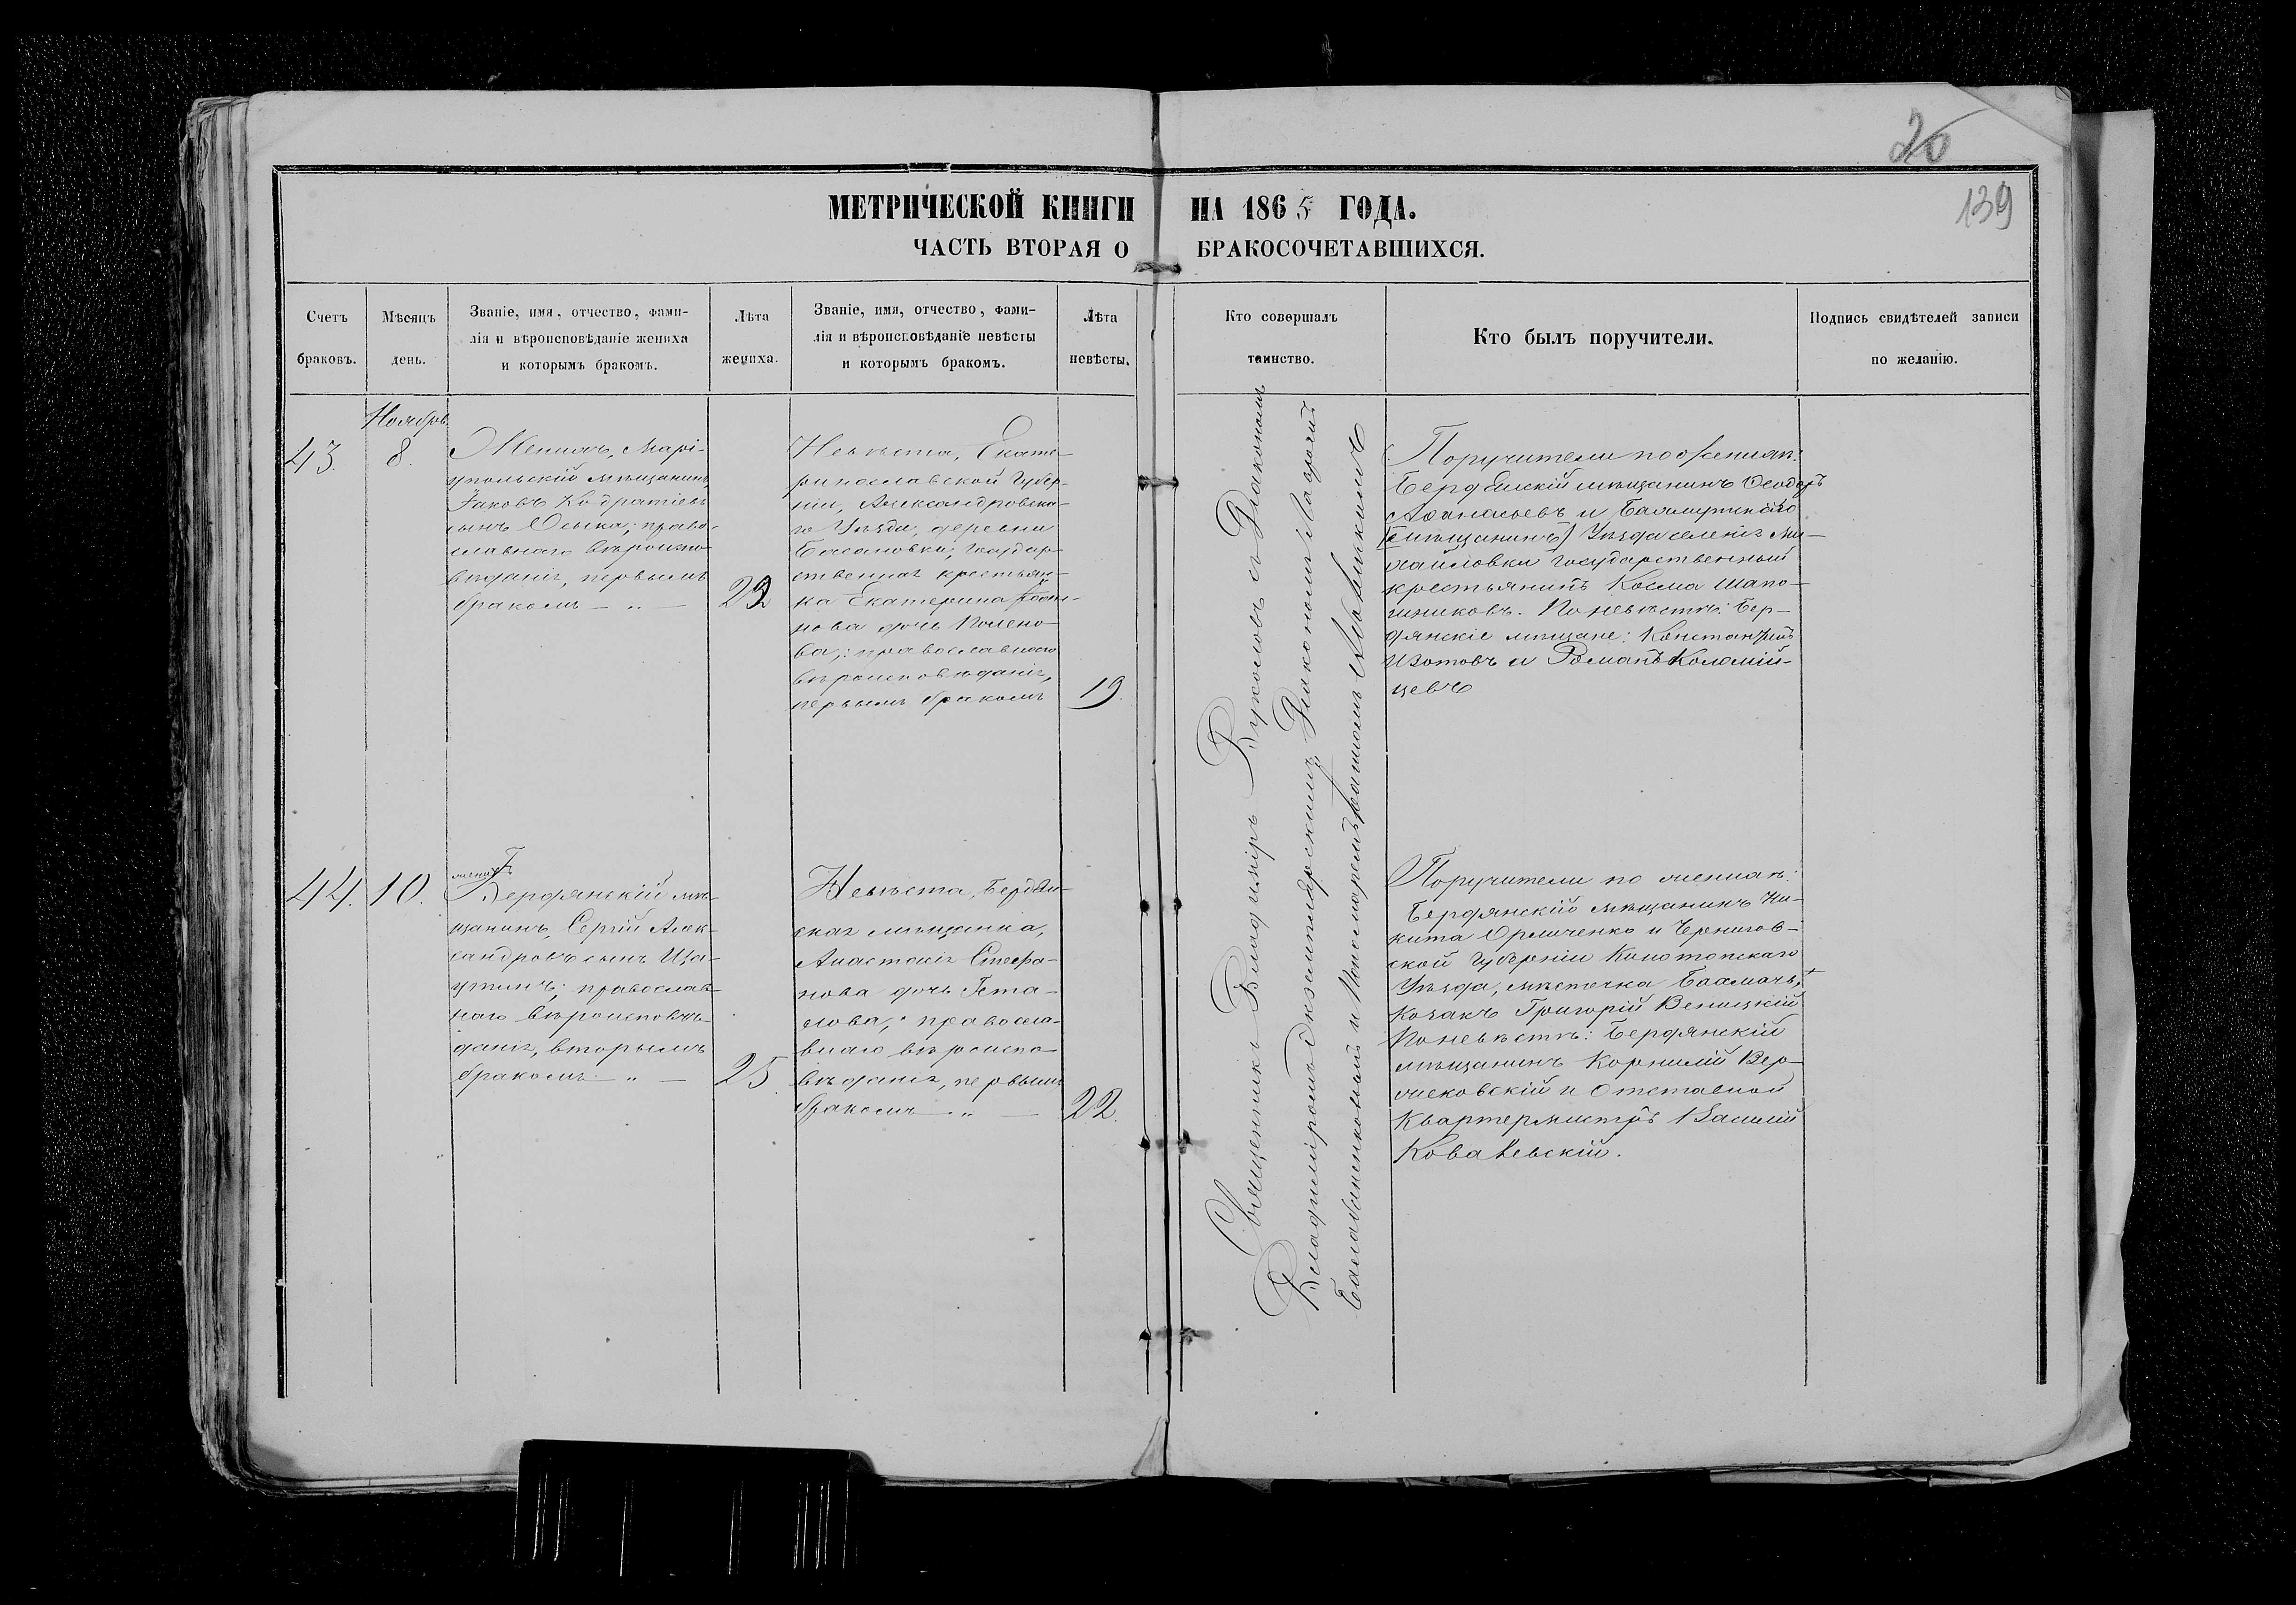 20
139
МЕТРИЧЕСКОЙ КНИГИ НА 1865 ГОДА.
ЧАСТЬ ВТОРАЯ О БРАКОСОЧЕТАВШИХСЯ.
Счетъ
браковъ.
Мѣсяцъ
день.
Званіе, имя, отчество, фами-
лія и вѣроисповѣданіе жениха
и которымъ бракомъ.
Лѣта
жениха.
Званіе, имя, отчество, фами-
лія и вѣроисповѣданіе невѣсты
и которымъ бракомъ.
Лѣта
невѣсты.
Кто совершалъ
таинство.
Кто былъ поручители.
Подпись свидѣтелей записи
по желанію.
Ноябрь
43.
8.
Женихъ, Марі-
упольскій мѣщанинъ,
Іаковъ Кодратіевъ
сынъ Оська; право-
славнаго вѣроиспо-
вѣданія, первымъ
бракомъ — „ —
22
Невѣста, Екате-
ринославской Губер-
ніи, Александровска-
го Уѣзда, деревни
Басановки, Государ-
ственная крестьян-
ка Екатерина
нова дочь Полено-
ва; православнаго
вѣроисповѣданія,
первымъ бракомъ
19.
Священникъ Владиміръ Вуколовъ съ Діакономъ
Владиміромъ Экземплярскимъ Діакономъ Назарій
Базилевскимъ
Поручители по женихѣ:
Бердянскій мѣщанинъ Ѳеодоръ
Аѳанасьевъ и Бахмутскаго
(мѣщанинъ) Уѣзда селенія Ми-
хайловки Государственный
крестьянинъ Косма Шапо-
шниковъ. По невѣстѣ: Бер-
дянскіе мѣщане: Константинъ
Изотовъ и Романъ Коломій-
цевъ
44.
10.
женихъ
Бердянскій мѣ-
щанинъ, Сергій Алек-
сандровъ сынъ Ща-
утинъ; православ-
наго вѣроисповѣ-
данія, вторымъ
бракомъ — „ —
25
Невѣста, Бердян-
ская мѣщанка,
Анастасія Стефа-
нова дочь Гета-
лова; правосла-
внаго вѣроиспо-
вѣданія, первымъ
бракомъ — „ —
22.
Поручители по женихѣ:
Бердянскій мѣщанинъ Ни-
кита Орличенко и Чернигов-
ской Губерніи Конотопскаго
Уѣзда, мѣстечка Бахмачъ,
козакъ Григорій Веницкій
По невѣстѣ: Бердянскій
мѣщанинъ Корнилій Вер-
жековскій и Отставной
Квартермистръ Василій
Ковалевскій.